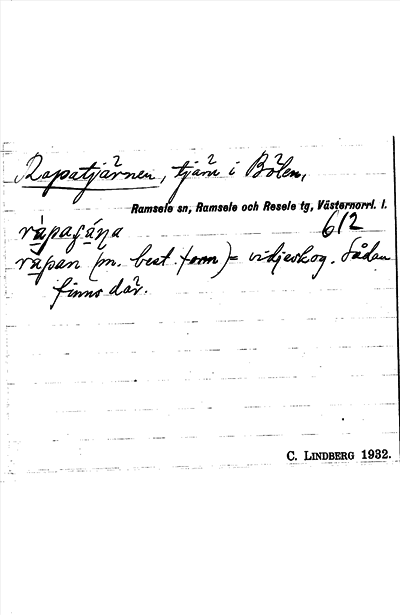 Rapatjärnen, tjärn i Bölen,
Ramsele sn, Ramsele och Resele tg, Västernorrl. l.
612
råpan (m. best. form) = vidjeskog. Sådan
finns där.
C. LINDBERG 1932.